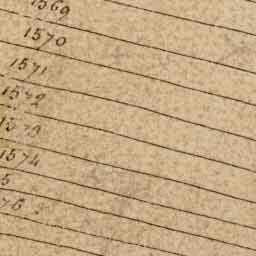 1569
1570
1571
1572
1573
1574
5
76